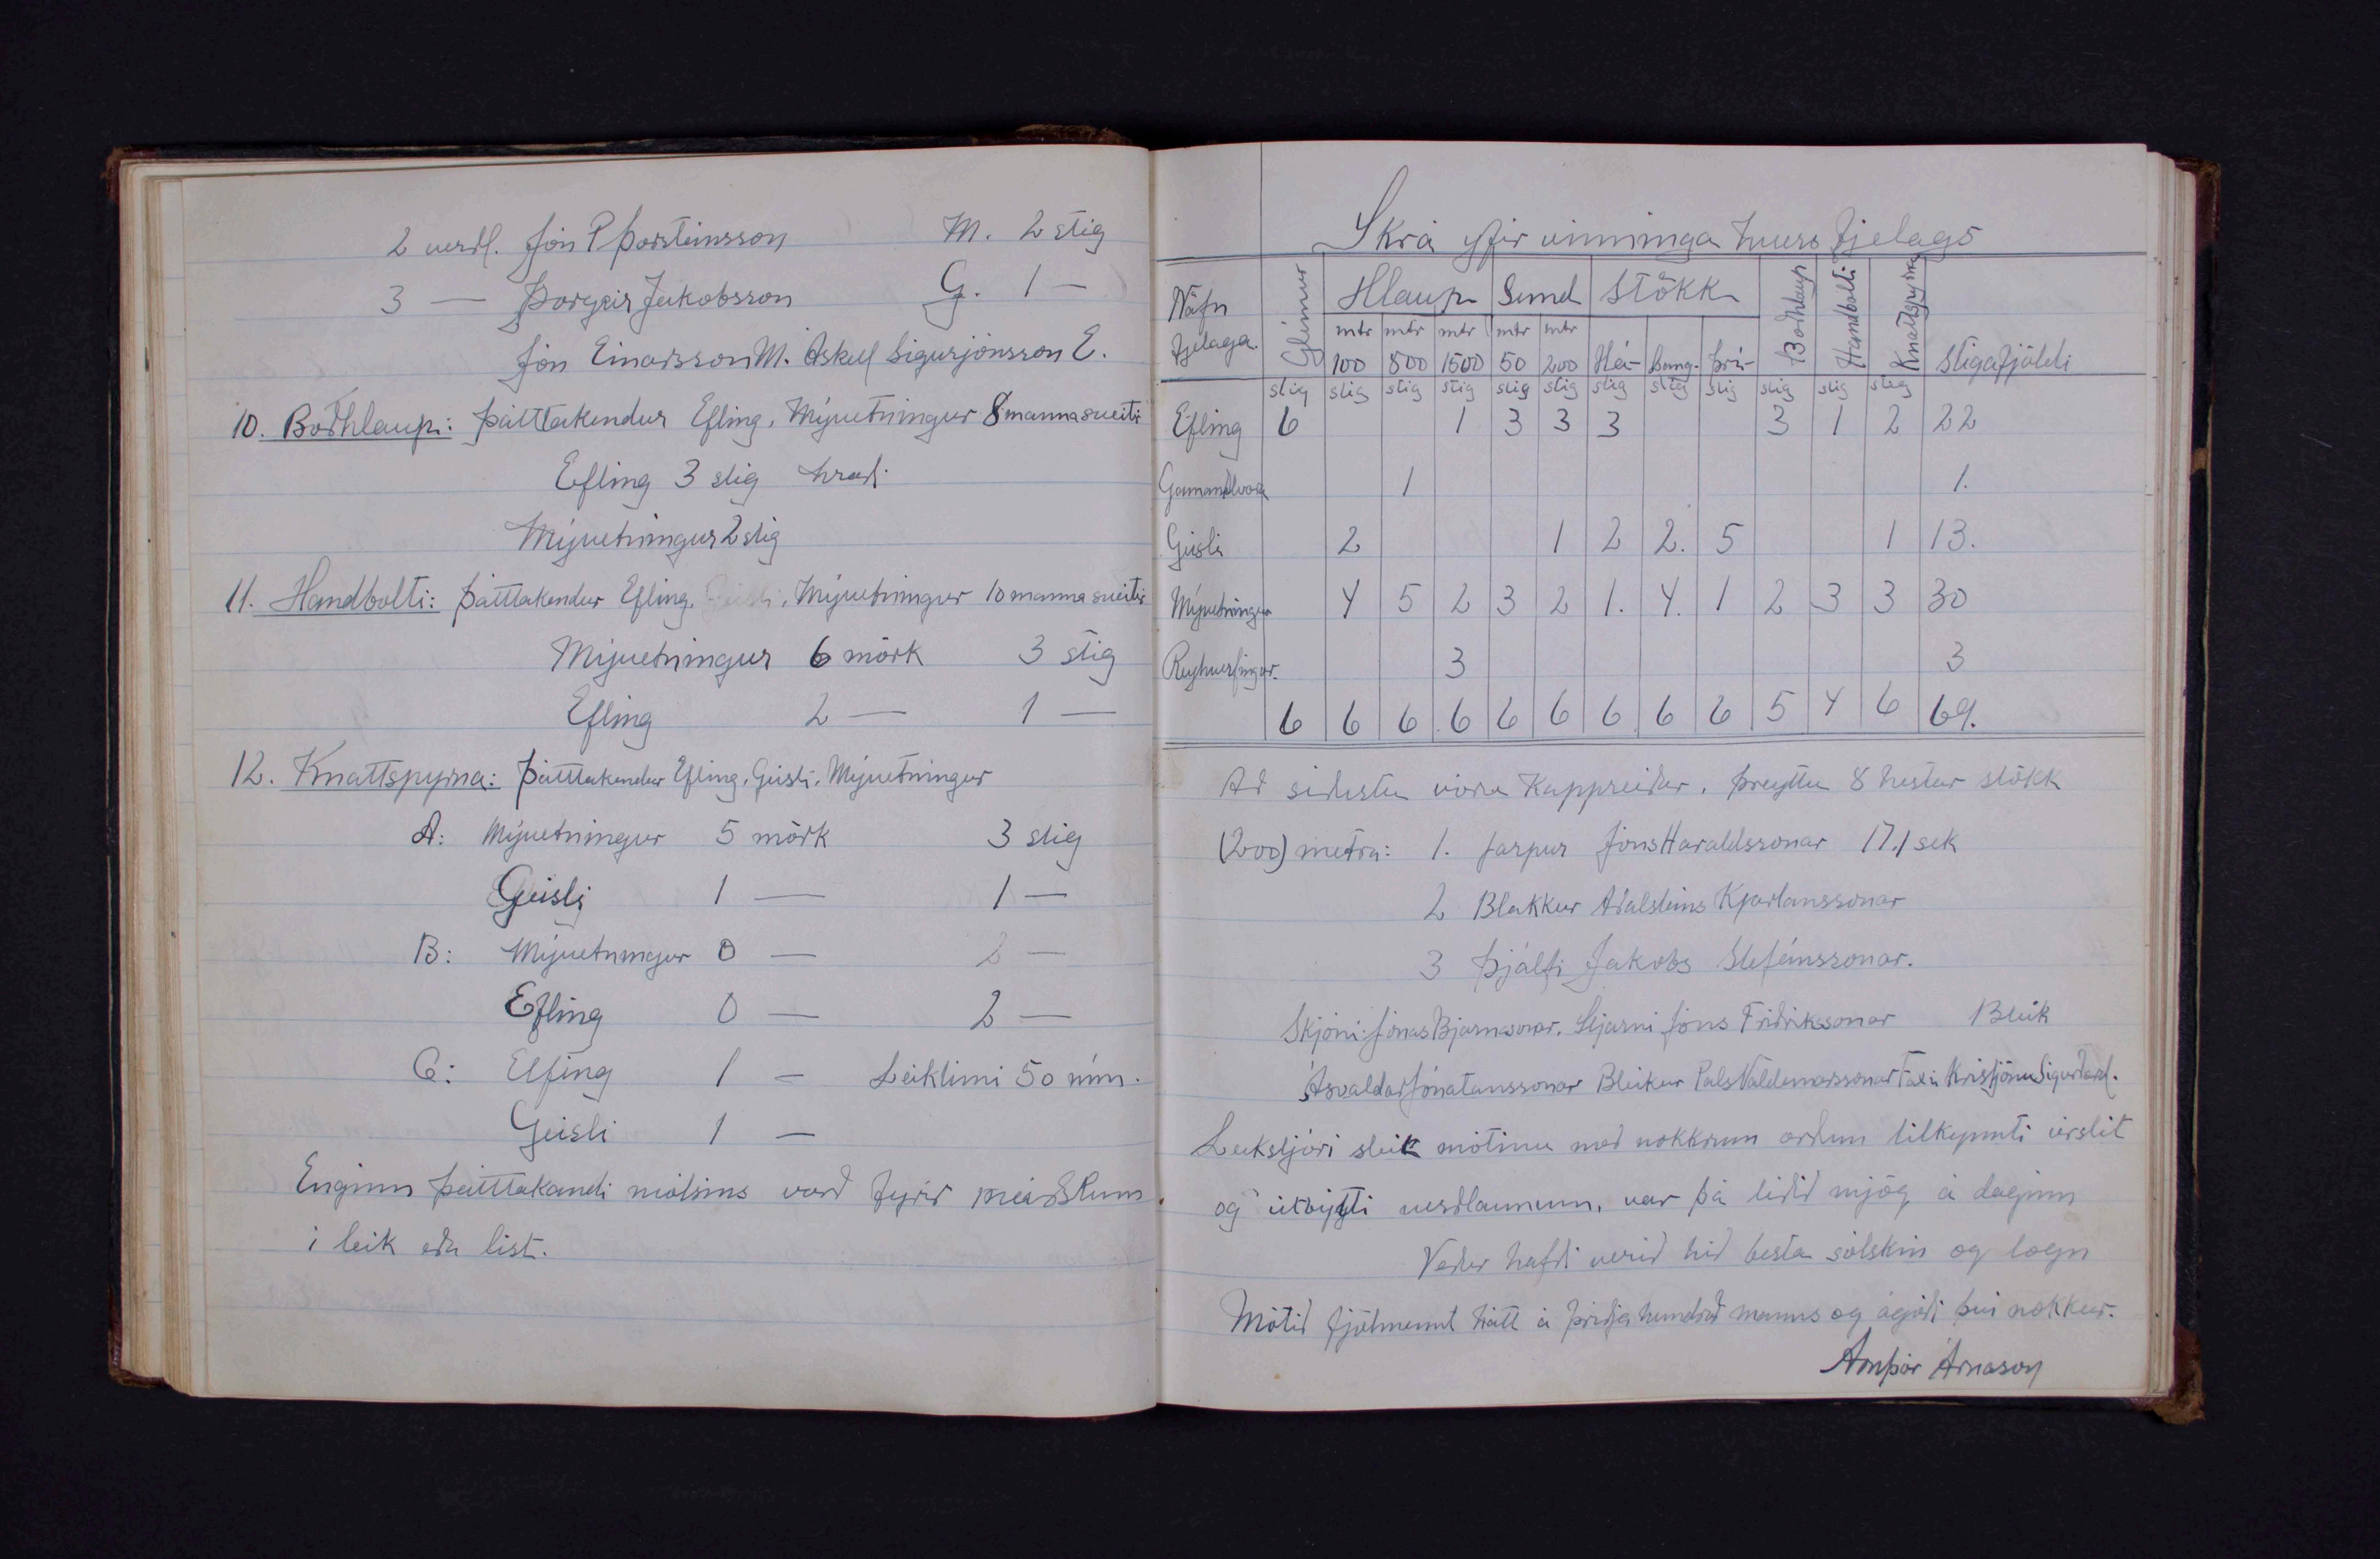 2 verdl. Jón P Þorsteinsson M. 2 stig
3 — Þorgeir Jakobsson G. 1 —
Jón Einarsson M. Áskell Sigurjónsson E.
10. Boðhlaup: Þátttakendur Efling, Mývetningur 8 manna sveitir
Efling 3 stig hradi
Mývetningur 2 stig
11. Handbolti: Þátttakendur Efling, Geisli, Mývetningur 10 manna sveitir
Mývetningur 6 mörk 3 stig
Efling 2 — 1 —
12. Knattspyrna: Þátttakendur Efling, Geisli, Mývetningur
A: Mývetningur 5 mörk 3 stig
Geisli 1 — 1 —
B: Mývetningur 0 — 2 —
Efling 0 — 2 —
C: Elfing 1 — Leiktimi 50 mín.
Geisli 1 —
Enginn þátttakandi mótsins vard fyrir meidslum
i leik eda list.
Skrá yfir vinninga hvers fjelags
Nöfn fjelaga. Glímur Hlaup Sund Stökk Boðhlaup Handbolti Knattspyrna Stigafjöldi
mtr mtr mtr mtr mtr
100 800 1500 50 200 Há- Lang- Þrí-
stig stig stig stig stig stig stig stig stig stig stig stig
Efling 6 1 3 3 3 3 1 2 22
Gamanskvöld 1 1.
Geisli 2 1 2 2. 5 1 13.
Mývetningur 4 5 2 3 2 1. 4. 1 2 3 3 30
Reykhverfingar. 3 3
6 6 6 6 6 6 6 6 6 5 4 6 69.
Ad sidustu vóru Kappreidar, þreyttu 8 hestar stökk
(200) metra: 1. Jarpur Jóns Haraldssonar 17.1 sek
2 Blakkur Adalsteins Kjartanssonar
3 Þjálfi Jakobs Stefánssonar.
Skjóni Jónas Bjarnasonar, Stjarni Jóns Fridrikssonar Bleik
Ásvaldar Jónatanssonar Bleikur Páls Valdemarssonar Taxi Kristjönu Sigurdard.
Leikstjóri sleik mótinu med nokkrum ordum tilkynnti úrslit
og útbýtti verdlaunum, var þá lidid mjög á daginn
Vedur hafdi verid hid besta sólskin og logn
Mótid fjölmennt hátt á þridja hundrad manns og ágódi því nokkur.
Arnþór Árnason